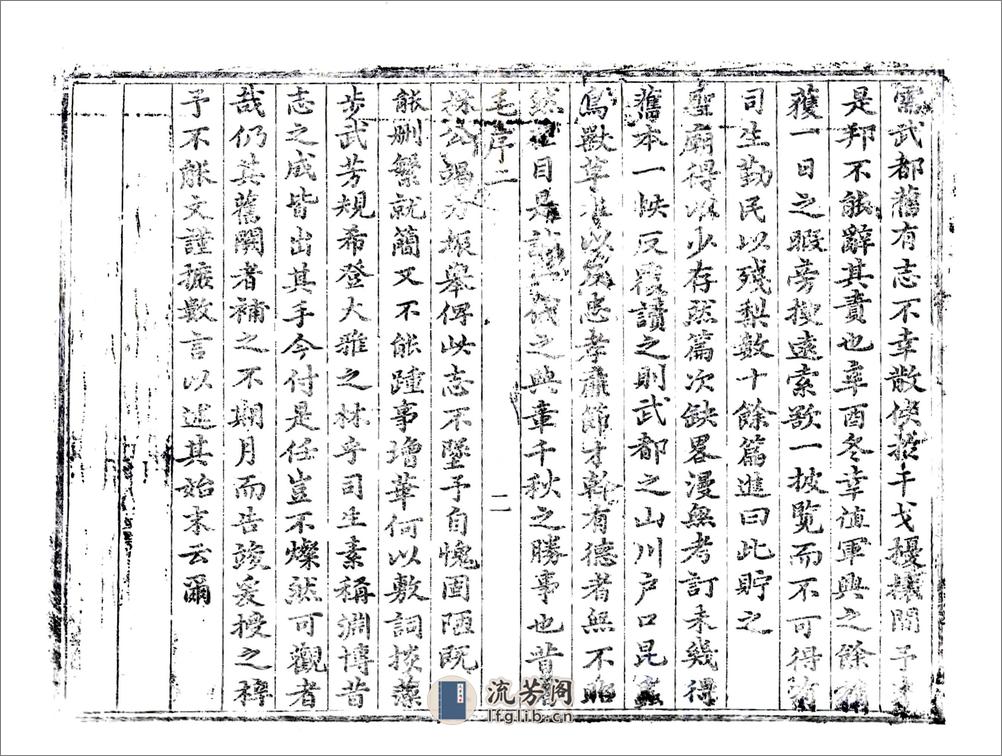 需武都舊有志不幸散佚於干戈擾攘間予
是邦不能辭其責也辛酉冬幸值軍興之餘
獲一日之暇旁搜遠索欲一披覽而不可得
司生勤民以殘梨數十餘篇進曰此貯之
聖廟得以少存然篇次缺畧漫無考訂未幾得
舊本一帙反復讀之則武都之山川户口昆蟲
鳥獸草木以及忠孝肅節才幹有德者無不昭
然在目是誠代之典章千秋之勝事也昔
毛序二 二
採公竭力振舉俾此志不墜予自愧固陋既
能刪繁就簡又不能踵事增華何以敷詞掞藻
步武芳規希登大雅之林乎司生素稱淵博昔
志之成皆出其手今付是任豈不燦然可觀者
哉仍其舊闕者補之不期月而告竣爰授之梓
予不能文謹摭數言以述其始末云爾
流芳阁
lfglib.cn